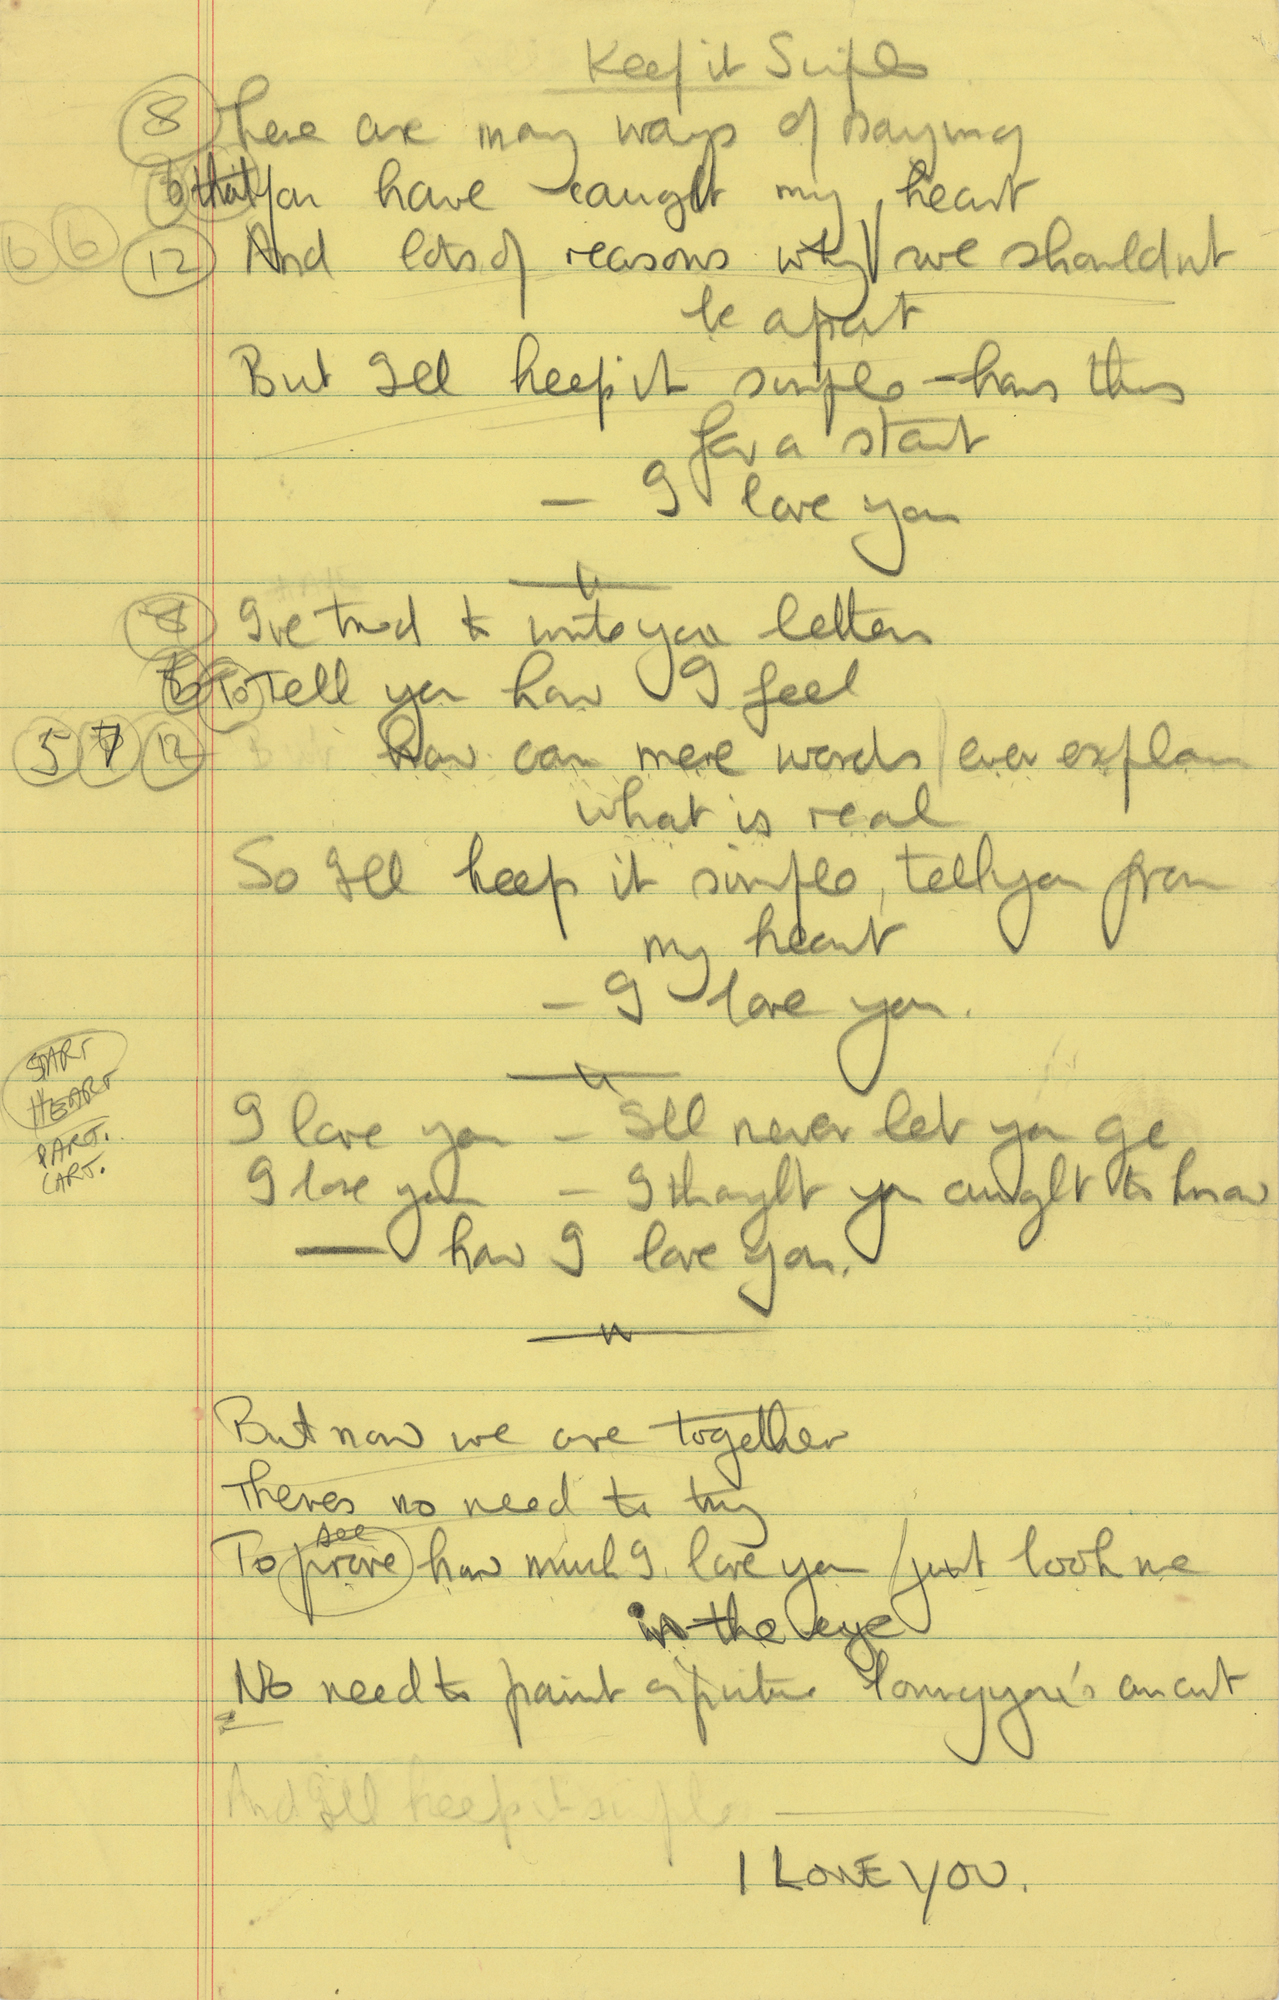 Keep it Simple
8 There are many ways of saying
6 that you have caught my heart
6 6 12 And lots of reasons why we shouldnt
be apart
But I'll keep it simple – hows this
for a start
– I love you
8 I've tried to write you letters
6 To Tell you how I feel
5 7 12 how can mere words / ever explain
what is real
So I'll keep it simple, tell you from
my heart
– I love you.
START
HEART
PART.
CART.
I love you – I'll never let you go
I love you – I thought you aught to know
– how I love you.
But now we are together
Theres no need to try
see
To prove how much I love you / just look me
in the eye
No need to paint a picture loving you's an art
And I'll keep it simple
I LOVE YOU.